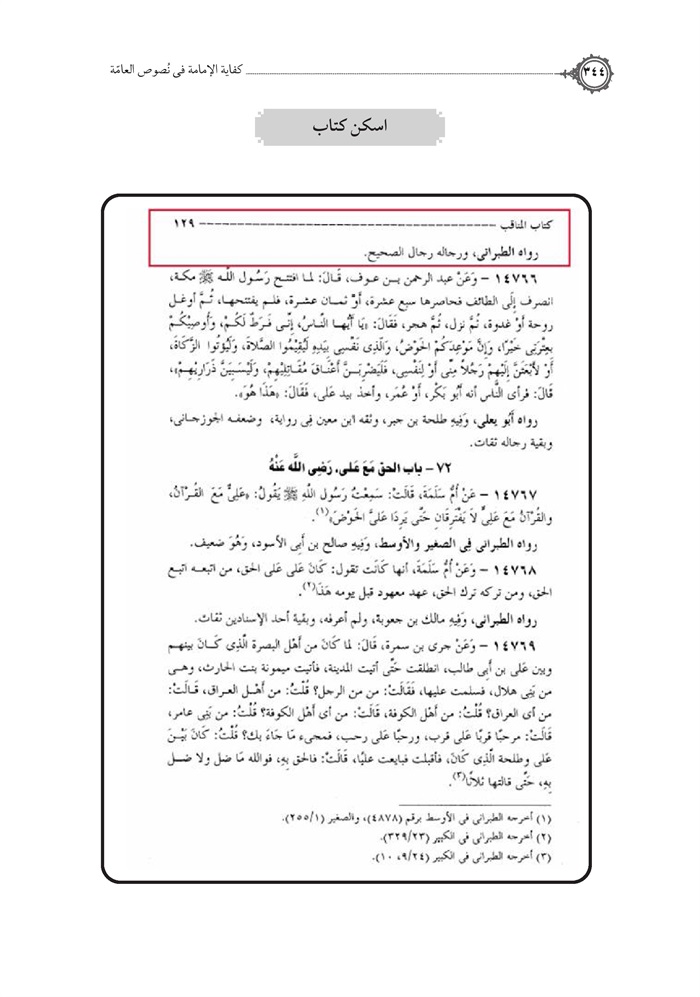 ٣٤٤ كفاية الإمامة فى نُصوص العامّة
اسكن كتاب
كتاب المناقب ------------------------------------------ ١٢٩
رواه الطبرانى، ورجاله رجال الصحيح.
١٤٧٦٦ – وَعَنْ عبد الرحمن بن عوف، قَالَ: لما افتتح رَسُول اللَّه ﷺ مكة،
انصرف إِلَى الطائف فحاصرها سبع عشرة، أَوْ ثمان عشرة، فلم يفتتحها، ثُمَّ أوغل
روحة أَوْ غدوة، ثُمَّ نزل، ثُمَّ هجر، فَقَالَ: «يَا أَيُّهَا النَّاسُ، إِنِّى فَرَطٌ لَكُمْ، وَأُوصِيكُمْ
بِعِتْرَتِى خَيْرًا، وَإِنَّ مَوْعِدَكُمُ الْحَوْضُ، وَالَّذِى نَفْسِى بِيَدِهِ لَيُقِيمُوا الصَّلاةَ، وَلَيُؤْتُوا الزَّكَاةَ،
أَوْ لأَبْعَثَنَّ إِلَيْهِمْ رَجُلاً مِنِّى أَوْ لِنَفْسِى، فَلَيَضْرِبَنَّ أَعْنَاقَ مُقَاتِلِيهِمْ، وَلَيَسْبِيَنَّ ذَرَارِيهِمْ»،
قَالَ: فرأى النَّاس أنه أَبُو بَكْر، أَوْ عُمَر، وأخذ بيد عَلى، فَقَالَ: «هَذَا هُوَ».
رواه أَبُو يعلى، وَفِيهِ طلحة بن جبر، وثقه ابن معين فِى رواية، وضعفه الجوزجانى،
وبقية رجاله ثقات.
٧٢ – باب الحق مَعَ عَلى، رَضِى اللَّه عَنْهُ
١٤٧٦٧ – عَنْ أُمِّ سَلَمَةَ، قَالَتْ: سَمِعْتُ رَسُول اللهِ ﷺ يَقُولُ: «عَلِىٌّ مَعَ الْقُرْآنُ،
والقُرْآنُ مَعَ عَلِىٍّ لاَ يَفْتَرِقَانِ حَتَّى يَرِدَا عَلىَّ الحَوْضَ»(١).
رواه الطبرانى فِى الصغير والأوسط، وَفِيهِ صالح بن أَبِى الأسود، وَهُوَ ضعيف.
١٤٧٦٨ – وَعَنْ أُم سَلَمَةَ، أنها كَانَت تقول: كَانَ عَلى عَلى الحق، من اتبعه اتبع
الحق، ومن تركه ترك الحق، عهد معهود قبل يومه هَذَا(٢).
رواه الطبرانى، وَفِيهِ مالك بن جعوبة، ولم أعرفه، وبقية أحد الإسنادين ثقات.
١٤٧٦٩ – وَعَنْ جرى بن سمرة، قَالَ: لما كَانَ من أَهْل البصرة الَّذِى كَانَ بينهم
وبين عَلى بن أَبِى طالب، انطلقت حَتَّى أتيت المدينة، فأتيت ميمونة بنت الحارث، وهى
من بَنِى هلال، فسلمت عليها، فَقَالَتْ: من من الرجل؟ قُلْتُ: من أَهْل العراق، قَالَتْ:
من أى العراق؟ قُلْتُ: من أَهْل الكوفة، قَالَتْ: من أى أَهْل الكوفة؟ قُلْتُ: من بَنِى عامر،
قَالَتْ: مرحبًا قربًا عَلى قرب، ورحبًا عَلى رحب، فمجىء مَا جَاءَ بك؟ قُلْتُ: كَانَ بَيْنَ
عَلى وطلحة الَّذِى كَانَ، فأقبلت فبايعت عليًا، قَالَتْ: فالحق بِهِ، فوالله مَا ضل ولا ضل
بِهِ، حَتَّى قالتها ثلاثًا(٣).
(١) أخرجه الطبرانى فى الأوسط برقم (٤٨٧٨)، والصغير (٢٥٥/١).
(٢) أخرجه الطبرانى فى الكبير (٣٢٩/٢٣).
(٣) أخرجه الطبرانى فى الكبير (٩/٢٤، ١٠).